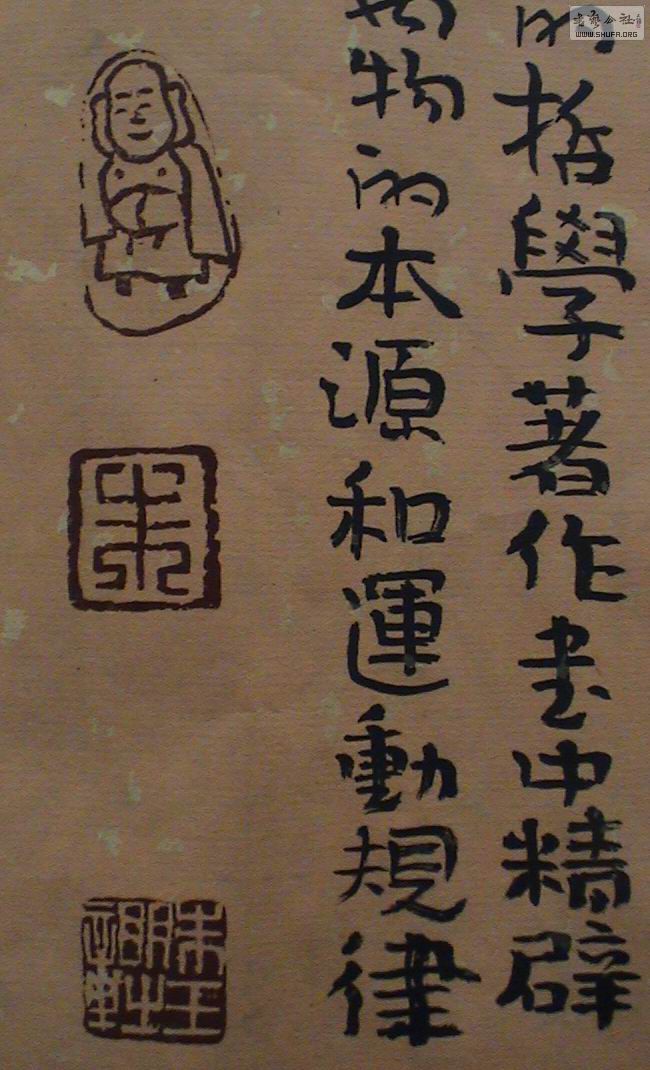 書藝公社
WWW.SHUFA.ORG
的哲學著作書中精辟
萬物的本源和運動規律
朱